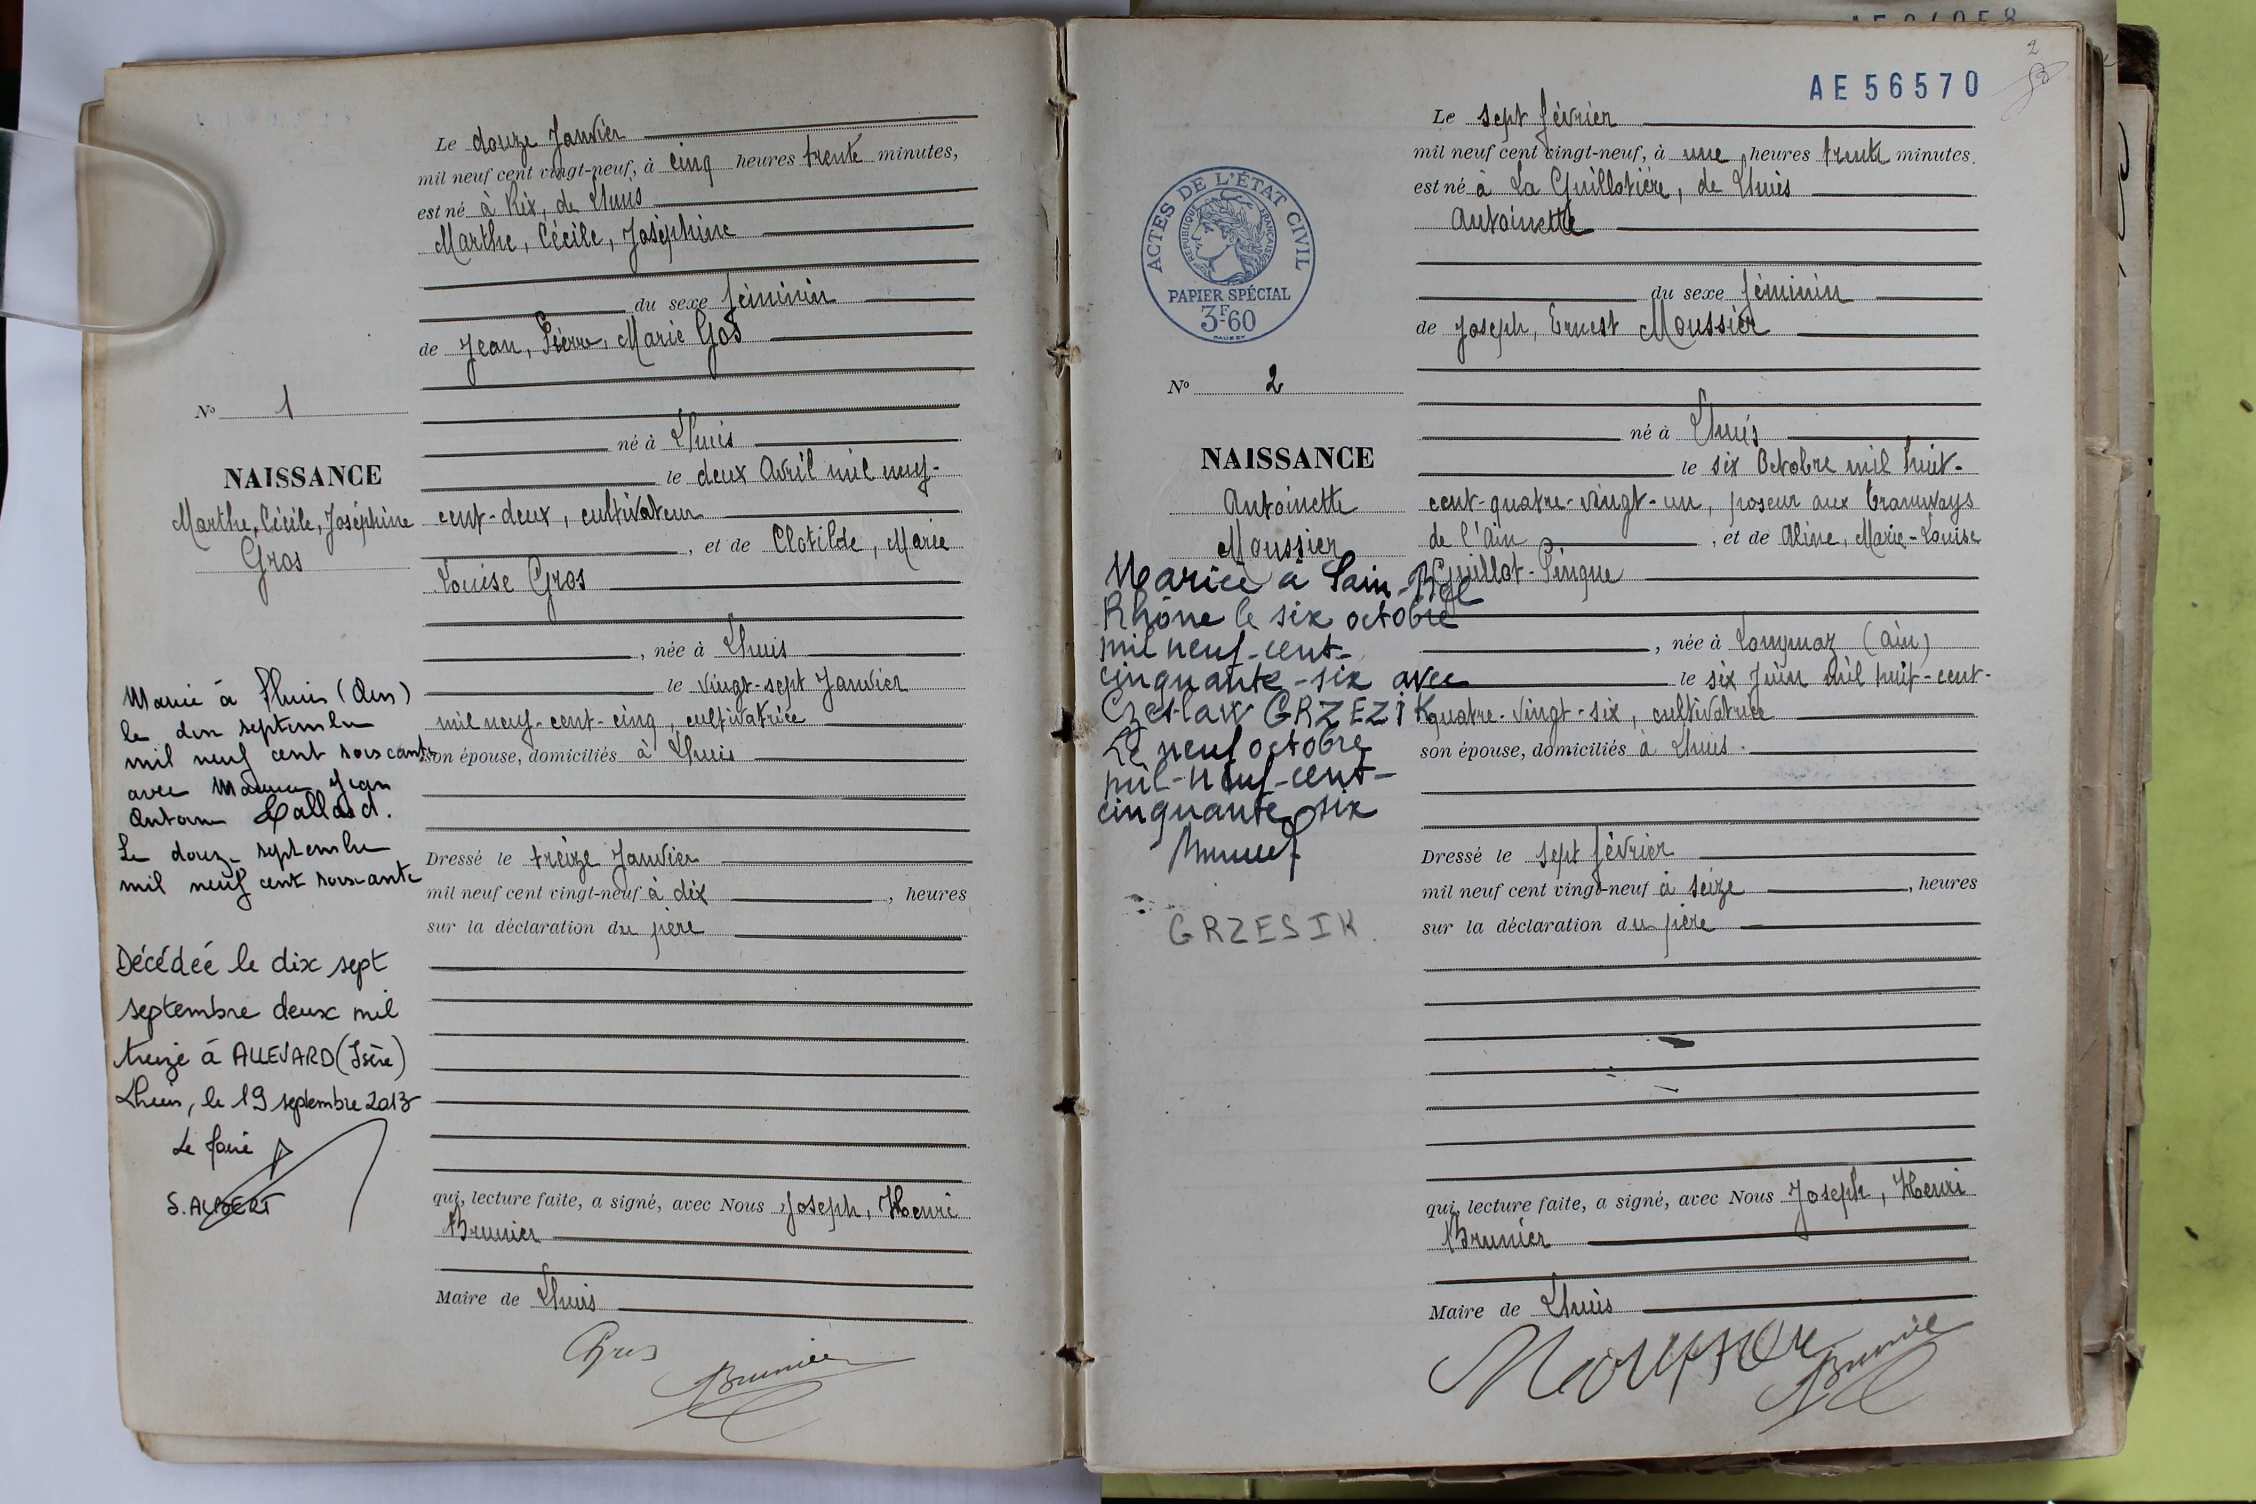 Le douze Janvier
mil neuf cent vingt-neuf, à cinq heures trente minutes,
est né à Rix, de Lhuis
Marthe, Cécile, Joséphine
du sexe féminin
de Jean, Pierre, Marie Gos
N° 1
né à Lhuis
le deux Avril mil neuf-
NAISSANCE
Marthe, Cécile, Joséphine
Gros
cent-deux, cultivateur
, et de Clotilde, Marie
Louise Gros
, née à Lhuis
le vingt-sept Janvier
mil neuf-cent-cinq, cultivatrice
son épouse, domiciliés à Lhuis
Marié à Lhuis (Ain)
le dix septembre
mil neuf cent soixante
avec Maurice Jean
Antoine Lallard.
Le douze septembre
mil neuf cent soixante
Dressé le treize Janvier
mil neuf cent vingt-neuf à dix , heures
sur la déclaration du père
Décédée le dix sept
septembre deux mil
treize à ALLEVARD (Isère)
Lhuis, le 19 septembre 2013
Le Maire
S. ALBERT
qui, lecture faite, a signé, avec Nous Joseph, Henri
Brunier
Maire de Lhuis
Gros
Brunier
2
AE 56570
Le sept février
mil neuf cent vingt-neuf, à une heures trente minutes.
est né à La Guillotière, de Lhuis
Antoinette
ACTES DE L'ÉTAT CIVIL
RÉPUBLIQUE FRANÇAISE
PAPIER SPÉCIAL
3F-60
du sexe féminin
de Joseph, Ernest Moussier
N° 2
né à Lhuis
le six Octobre mil huit-
NAISSANCE
Antoinette
Moussier
cent-quatre-vingt-un, poseur aux tramways
de l'Ain , et de Aline, Marie-Louise
Guillot-Pingue
, née à Lompnaz (Ain)
le six Juin mil huit-cent-
quatre-vingt-six, cultivatrice
son épouse, domiciliés à Lhuis.
Mariée à Sain-Bel
Rhône le six octobre
mil neuf-cent-
cinquante-six avec
Czeslaw GRZEZIK
Le neuf octobre
mil-neuf-cent-
cinquante six
GRZESIK.
Dressé le sept février
mil neuf cent vingt-neuf à seize , heures
sur la déclaration du père
qui, lecture faite, a signé, avec Nous Joseph, Henri
Brunier
Maire de Lhuis
Moussier
Brunier